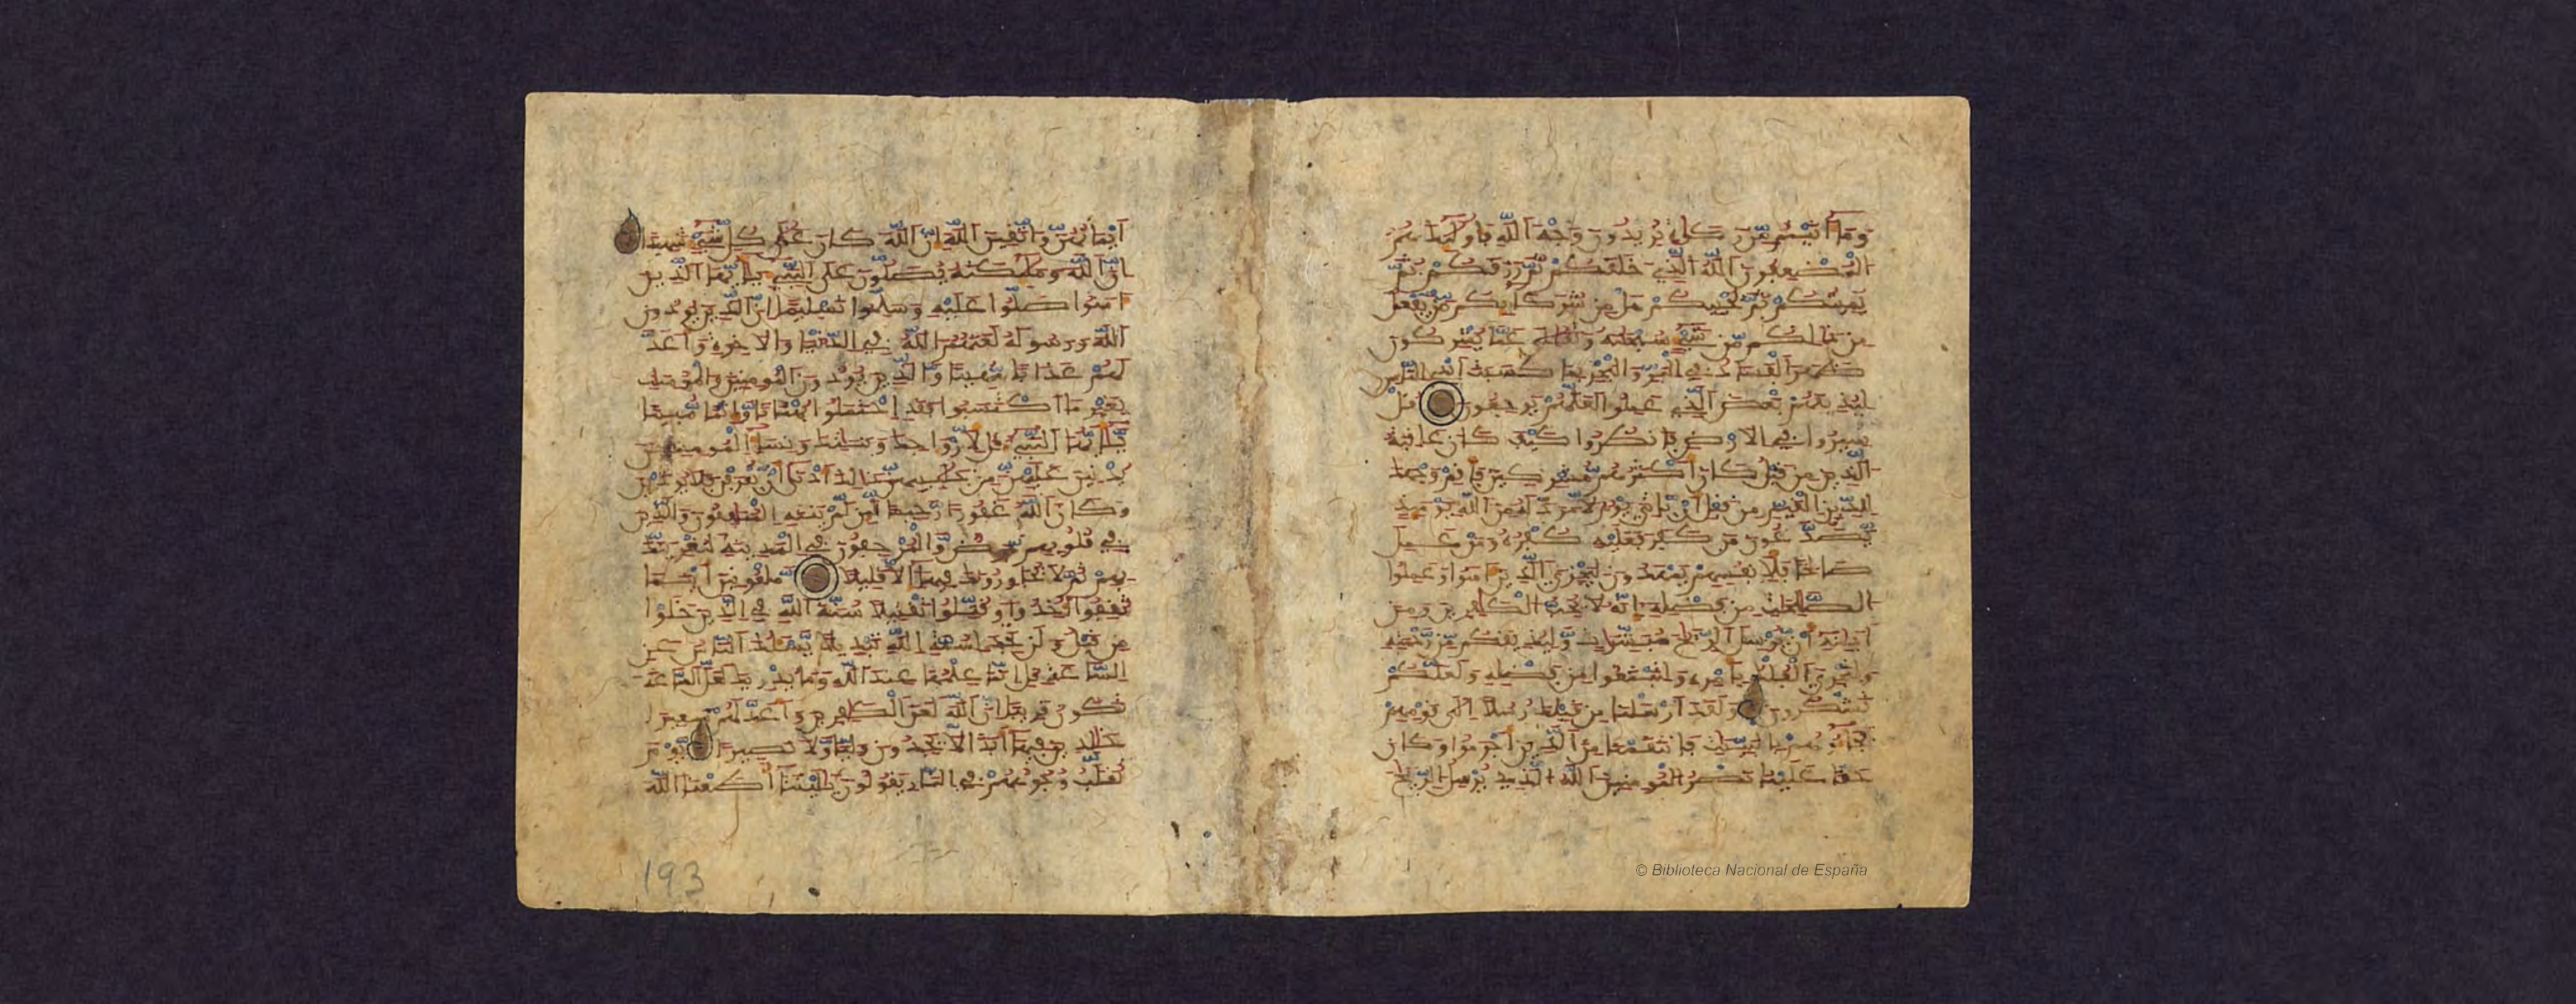 وَمَا ءَاتَيْتُم مِّن زَكَوٰةٍ تُرِيدُونَ وَجْهَ اللَّهِ فَأُوْلَٰئِكَ هُمُ
الْمُضْعِفُونَ اللَّهُ الَّذِي خَلَقَكُمْ ثُمَّ رَزَقَكُمْ ثُمَّ
يُمِيتُكُمْ ثُمَّ يُحْيِيكُمْ هَلْ مِن شُرَكَائِكُم مَّن يَفْعَلُ
مِن ذَٰلِكُم مِّن شَيْءٍ سُبْحَٰنَهُ وَتَعَٰلَىٰ عَمَّا يُشْرِكُونَ
ظَهَرَ الْفَسَادُ فِي الْبَرِّ وَالْبَحْرِ بِمَا كَسَبَتْ أَيْدِي النَّاسِ
لِيُذِيقَهُم بَعْضَ الَّذِي عَمِلُوا لَعَلَّهُمْ يَرْجِعُونَ قُلْ
سِيرُوا فِي الْأَرْضِ فَانظُرُوا كَيْفَ كَانَ عَاقِبَةُ
الَّذِينَ مِن قَبْلُ كَانَ أَكْثَرُهُم مُّشْرِكِينَ فَأَقِمْ وَجْهَكَ
لِلدِّينِ الْقَيِّمِ مِن قَبْلِ أَن يَأْتِيَ يَوْمٌ لَّا مَرَدَّ لَهُ مِنَ اللَّهِ يَوْمَئِذٍ
يَصَّدَّعُونَ مَن كَفَرَ فَعَلَيْهِ كُفْرُهُ وَمَنْ عَمِلَ
صَٰلِحًا فَلِأَنفُسِهِمْ يَمْهَدُونَ لِيَجْزِيَ الَّذِينَ ءَامَنُوا وَعَمِلُوا
الصَّٰلِحَٰتِ مِن فَضْلِهِ إِنَّهُ لَا يُحِبُّ الْكَٰفِرِينَ وَمِنْ
ءَايَٰتِهِ أَن يُرْسِلَ الرِّيَاحَ مُبَشِّرَٰتٍ وَلِيُذِيقَكُم مِّن رَّحْمَتِهِ
وَلِتَجْرِيَ الْفُلْكُ بِأَمْرِهِ وَلِتَبْتَغُوا مِن فَضْلِهِ وَلَعَلَّكُمْ
تَشْكُرُونَ وَلَقَدْ أَرْسَلْنَا مِن قَبْلِكَ رُسُلًا إِلَىٰ قَوْمِهِمْ
فَجَاءُوهُم بِالْبَيِّنَٰتِ فَانتَقَمْنَا مِنَ الَّذِينَ أَجْرَمُوا وَكَانَ
حَقًّا عَلَيْنَا نَصْرُ الْمُومِنِينَ اللَّهُ الَّذِي يُرْسِلُ الرِّيَٰحَ
أَيْمَٰنُهُنَّ وَاتَّقِينَ اللَّهَ إِنَّ اللَّهَ كَانَ عَلَىٰ كُلِّ شَيْءٍ شَهِيدًا
إِنَّ اللَّهَ وَمَلَٰئِكَتَهُ يُصَلُّونَ عَلَى النَّبِيءِ يَٰأَيُّهَا الَّذِينَ
ءَامَنُوا صَلُّوا عَلَيْهِ وَسَلِّمُوا تَسْلِيمًا إِنَّ الَّذِينَ يُوذُونَ
اللَّهَ وَرَسُولَهُ لَعَنَهُمُ اللَّهُ فِي الدُّنْيَا وَالْأَخِرَةِ وَأَعَدَّ
لَهُمْ عَذَابًا مُّهِينًا وَالَّذِينَ يُوذُونَ الْمُومِنِينَ وَالْمُومِنَٰتِ
بِغَيْرِ مَا اكْتَسَبُوا فَقَدِ احْتَمَلُوا بُهْتَٰنًا وَإِثْمًا مُّبِينًا
يَٰأَيُّهَا النَّبِيءُ قُل لِّأَزْوَٰجِكَ وَبَنَاتِكَ وَنِسَاءِ الْمُومِنِينَ
يُدْنِينَ عَلَيْهِنَّ مِن جَلَٰبِيبِهِنَّ ذَٰلِكَ أَدْنَىٰ أَن يُعْرَفْنَ فَلَا يُوذَيْنَ
وَكَانَ اللَّهُ غَفُورًا رَّحِيمًا لَّئِن لَّمْ يَنتَهِ الْمُنَٰفِقُونَ وَالَّذِينَ
فِي قُلُوبِهِم مَّرَضٌ وَالْمُرْجِفُونَ فِي الْمَدِينَةِ لَنُغْرِيَنَّكَ
بِهِمْ ثُمَّ لَا يُجَاوِرُونَكَ فِيهَا إِلَّا قَلِيلًا مَلْعُونِينَ أَيْنَمَا
ثُقِفُوا أُخِذُوا وَقُتِّلُوا تَقْتِيلًا سُنَّةَ اللَّهِ فِي الَّذِينَ خَلَوْا
مِن قَبْلُ وَلَن تَجِدَ لِسُنَّةِ اللَّهِ تَبْدِيلًا يَسْـَٔلُكَ النَّاسُ عَنِ
السَّاعَةِ قُلْ إِنَّمَا عِلْمُهَا عِندَ اللَّهِ وَمَا يُدْرِيكَ لَعَلَّ السَّاعَةَ
تَكُونُ قَرِيبًا إِنَّ اللَّهَ لَعَنَ الْكَٰفِرِينَ وَأَعَدَّ لَهُمْ سَعِيرًا
خَٰلِدِينَ فِيهَا أَبَدًا لَّا يَجِدُونَ وَلِيًّا وَلَا نَصِيرًا يَوْمَ
تُقَلَّبُ وُجُوهُهُمْ فِي النَّارِ يَقُولُونَ يَٰلَيْتَنَا أَطَعْنَا اللَّهَ
193
© Biblioteca Nacional de España